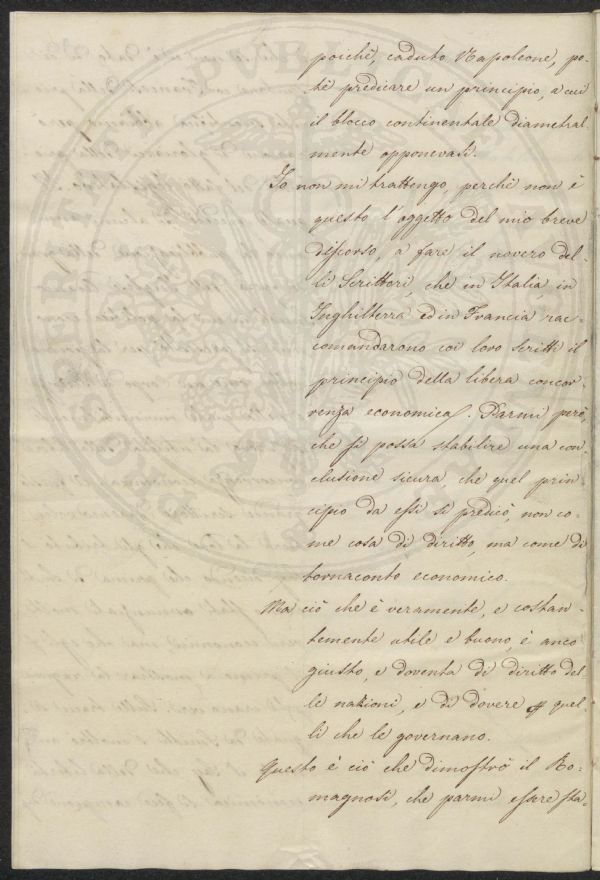 poichè, caduto Napoleone, po-
tè predicare un principio, a cui
il blocco continentale diametral
mente opponevasi.
Io non mi trattengo, perchè non è
questo l'oggetto del mio breve
discorso, a fare il novero del-
li Scrittori, che in Italia, in
Inghilterra ed in Francia rac-
comandarono coi loro scritti il
principio della libera concor-
renza economica. Parmi però,
che si possa stabilire una con-
clusione sicura, che quel prin-
cipio da essi si predicò, non co-
me cosa di diritto, ma come di
tornaconto economico.
Ma ciò che è veramente, e costan-
temente utile e buono, è anco
giusto, e doventa di diritto del-
le nazioni, e di dovere quel-
li che le governano.
Questo è ciò che dimostrò il Ro-
magnosi, che parmi essere sta-